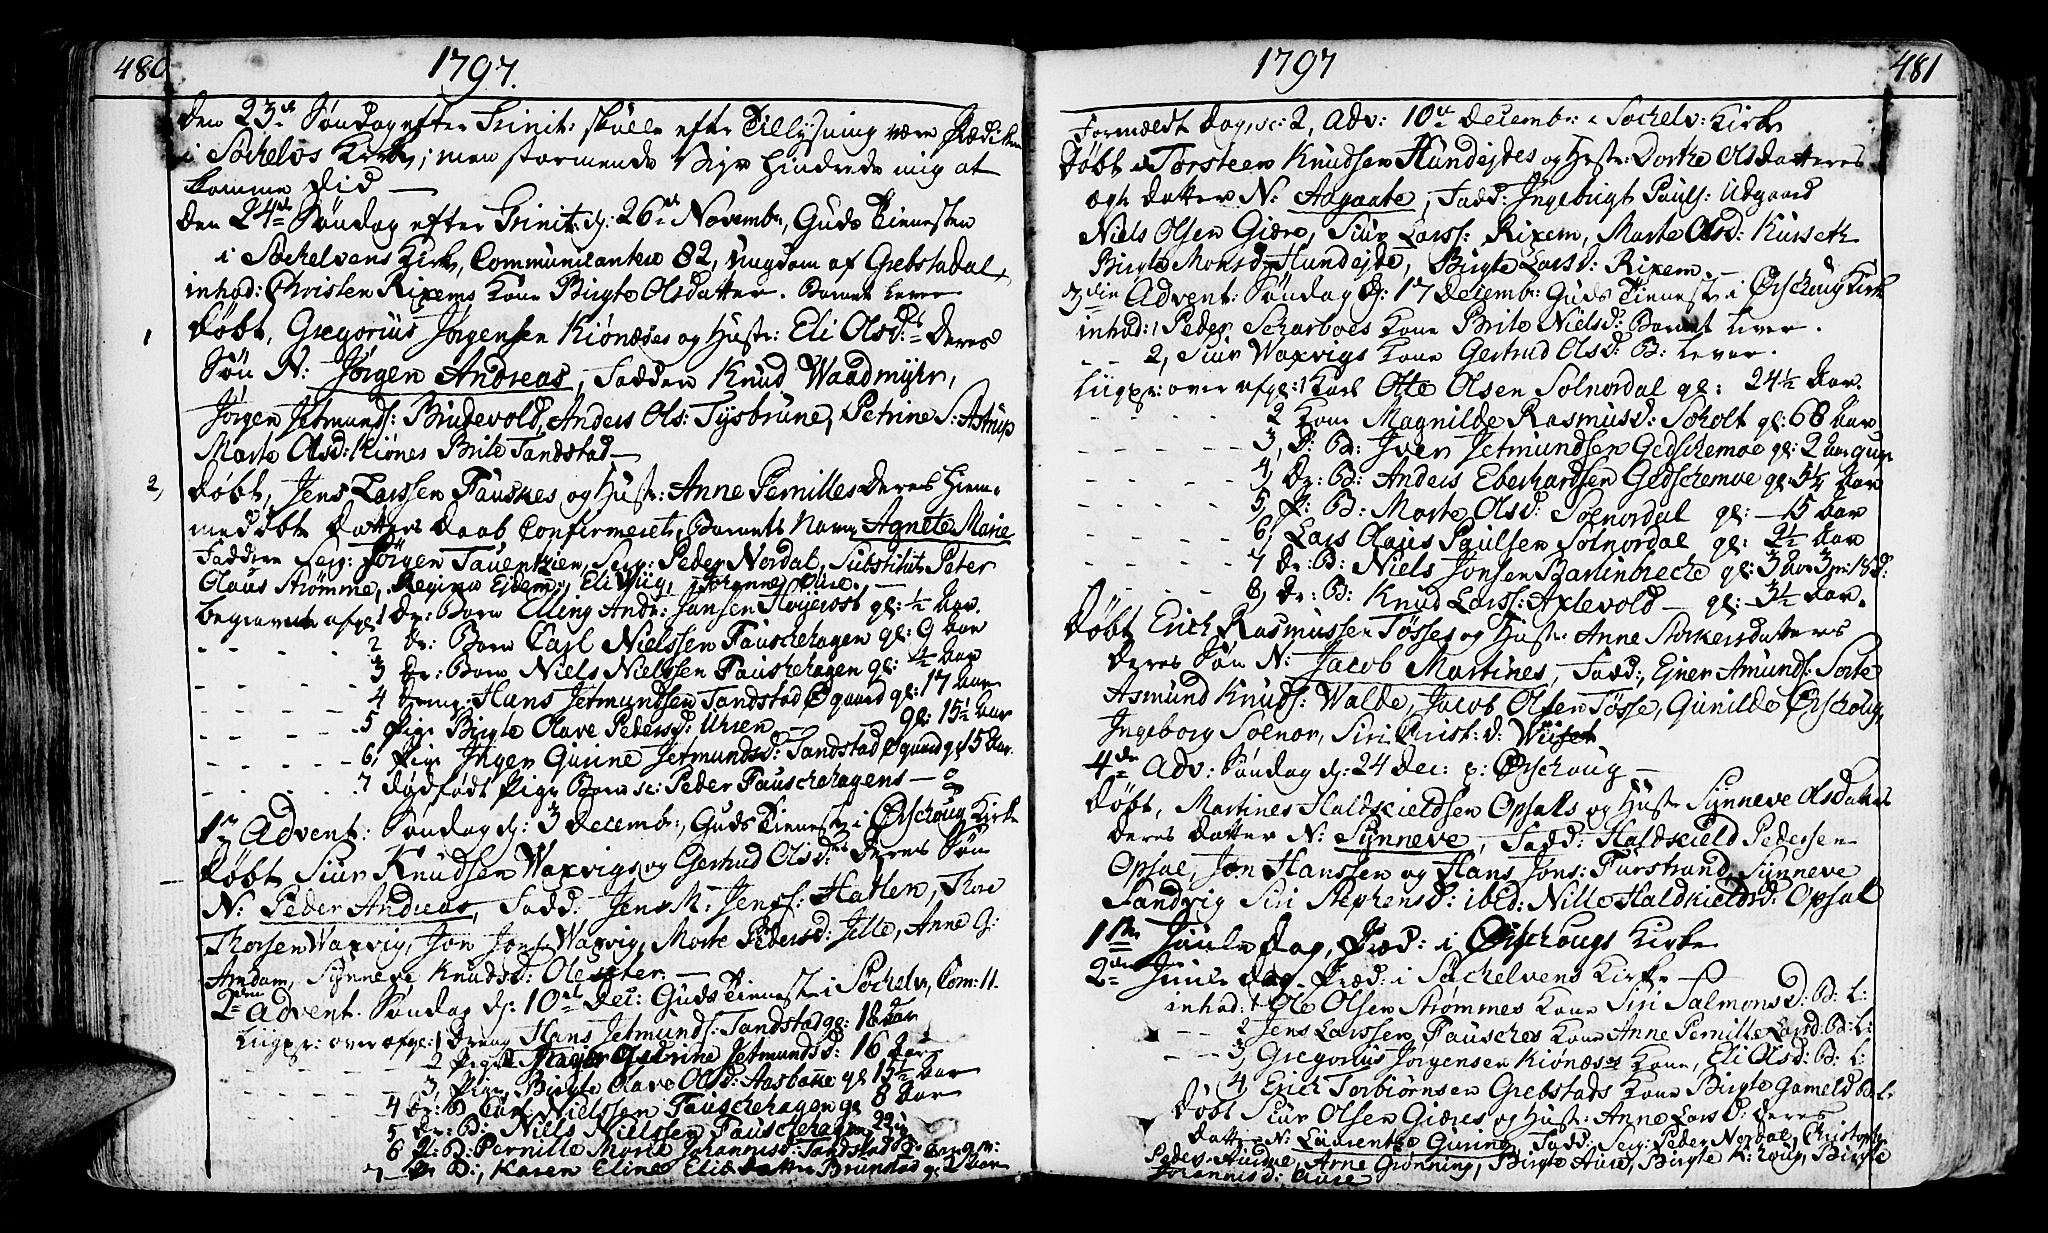 480 1797.
den 23de Søndag efter Trinit: skulle efter Tillysning være Prædiken
i Søchelvs Kirke; men stormende Vejr hindrede mig at
komme did —
den 24de Søndag efter Trinit: d: 26de Novembr:, Guds Tienesten
i Søchelvens Kirke, Communicanter 82, Ungdom af Grebstadal
inhad: Christen Rixems Kone Birgte Olsdatter. Barnet lever
1 døbt, Gregorius Jørgensen Kiønæses og Hustr: Eli Olsd: deres
Søn N: Jørgen Andreas, Faddere Knud Waadmyhr,
Jørgen Jetmunds: Brudevold, Anders Ols: Tysbrune, Petrine S: Astrup
Marte Olsd: Kiønes Brite Tandstad —
2, døbt, Jens Larssen Fauskes og Hustr: Anne Pernilles deres hiem-
medøbte datters daab Confirmeret, Barnets Navn Agnete Marie
Faddere Serg: Jørgen Tauenkien, Serg: Peder Nordal, Substitut: Peter
Olaus Strømme, Regina Eidem, Eli Hüg, Johanne Aure. —
begravne afgl: 1 dr: Barn Elling Andr: Jansen Højerost gl: ½ Aar.
- - - - 2 dr: Barn Carl Nielssen Fauschehagen gl: 9 Aar
- - - - 3 dr: Barn Niels Nielssen Fauschehagen gl: 4½ Aar
- - - - 4 dreng: Hans Jetmundsen Tandstad Øgaard gl: 17 Aar
- - - - 5 Pige Birgte Olave Pedersd: Uhren — gl: 15½ Aar
- - - - 6, Pige Inger Gurine Jetmundsd: Tandstad Øgaard gl: 15 Aar.
- - - - 7 dødfødt Pige Barn sc: Peder Fauschehagens — 0
1ste Advent: Søndag d: 3 decembr:, Guds Tieneste i Ørschoug Kirke
døbt Siur Knudsen Waxvigs og Gertrud Olsd: deres Søn
N: Peder Andreas, Fadd: Jens M: Jenss: Hatlen, Thore
Thorsen Waxvig, Jon Jons: Waxvig, Marte Pedersd: Jelle, Anne G:
Amdam, Synneve Knudsd: Oleseter. —
2den Advent. Søndag d: 10de Dec: Guds Tieneste i Søchelv, Com: 11.
Liigpr: over afgl: 1 dreng Hans Jetmunds: Tandstad gl: 18 Aar
- - - - 2 Pige Inger Gurine Jetmundsd: 16 Aar
- - - - 3 Pige Birgte Olave Olsd: Aasbakke gl 15½ Aar
4 dr: B: Carl Nielssen Fauschehagen gl 8 Aar
5 dr: B: Niels Nielssen Fauschehagen
6 P: B: Pernille Marie Johannisd: Tandstad
7 B:, Karen Eline Eliædatter Brunstad gl: 2 Aar
1797 481
Formældt dag, sc: 2, Adv: 10de Decembr: i Søchelv: Kirke
døbt Torsteen Knudsen Hundejdes og Hustr: Dorthe Olsdatteres
ægte datter N: Aagaate, Fadd: Ingebrigt Pauls: Udgaard
Niels Olsen Giære, Siur Larss: Rixem, Marte Olsd: Kurseth
Birgte Monsd: Hundejde, Birgte Larsd: Rixem. —
3die Advent: Søndag d: 17 Decembr: Guds Tieneste i Ørschoug Kirke
inhad: 1 Peder Scharboes Kone Brite Nielsd: Barnet lever.
- - 2, Siur Waxvigs Kone Gertrud Olsd: B: lever.
Liigpr: over afgl: 1 Karl Otte Olsen Solnordal gl: 24½ Aar.
- - - - 2 Kone Magnilde Rasmusd: Søholt gl: 68 Aar
- - - - 3, d: B: Iver Jetmundsen Gedschemoe gl: 2 Aar
- - - - 4, dr: B: Anders Eberhardsen Gedschemoe gl: 5¼ Aar
- - - - 5, P: B: Marte Olsd: Solnordal gl: — 15 Aar
- - - - 6, Lars Olaus Paulsen Solnordal gl: 2½ Aar
- - - - 7 dr: B: Niels Jonsen Bartenbreche gl: 3 Aar 3 m: 18 d:
- - - - 8, dr: B: Knud Larss: Axlevold — gl: 3½ Aar.
døbt Erich Rasmussen Tøsses og Hustr: Anne Storkersdatteres
deres Søn N: Jacob Martines, Fadd:, Ejner Amunds: Sorte
Asmund Knuds: Walde, Jacob Olsen Tøsse, Gunilde Ørschoug,
Ingeborg Solnor, Siri Christ: d: Wiiset
4de Adv: Søndag d: 24 Dec: p: Ørschoug —
døbt, Martines Haldskieldsen Opsals og Hustr Synneve Olsdatters
deres datter N: Synneve, Fadd: Haldskield Pedersen
Opsal, Jon Hanssen og Hans Jons: Furstrand, Synneve
Sandvig Siri Stephensd: ibid: Nille Haldskieldsd: Opsal
1ste Juule dag, Præd: i Ørschougs Kirke
2den Juule dag Præd: i Søchelvens Kirke —
inhad: 1 Ole Olsen Strømmes Kone Siri Salmonsd: B: L:
- - 2 Jens Larssen Fausches Kone Anne Pernille Larsd: B: L:
- - 3, Gregorius Jørgensen Kiønæses Kone, Eli Olsd: B: L:
4 Erich Torbiørnsen Grebstads Kone Birgte Gameld: B: L:
døbt Siur Olsen Giæres og Hustr: Anne Larsd: deres
datter N: Laurentze Guring, Fadd: Serg: Peder Nordal, Christopher
Peders: Aurdue, Arne Grønning, Birgte Aure, Birgte K: Houg, Birgte
Johannisd: Aure